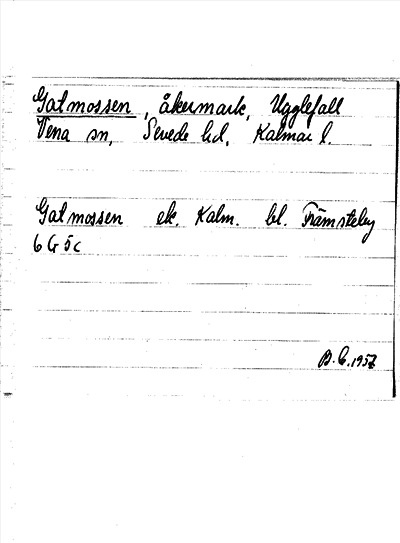 Galmossen, åkermark, Ugglefall
Vena sn, Sevede hd, Kalmar l.
Galmossen ek. Kalm. bl. Främsteby
6 G 5 c
B.C. 1957